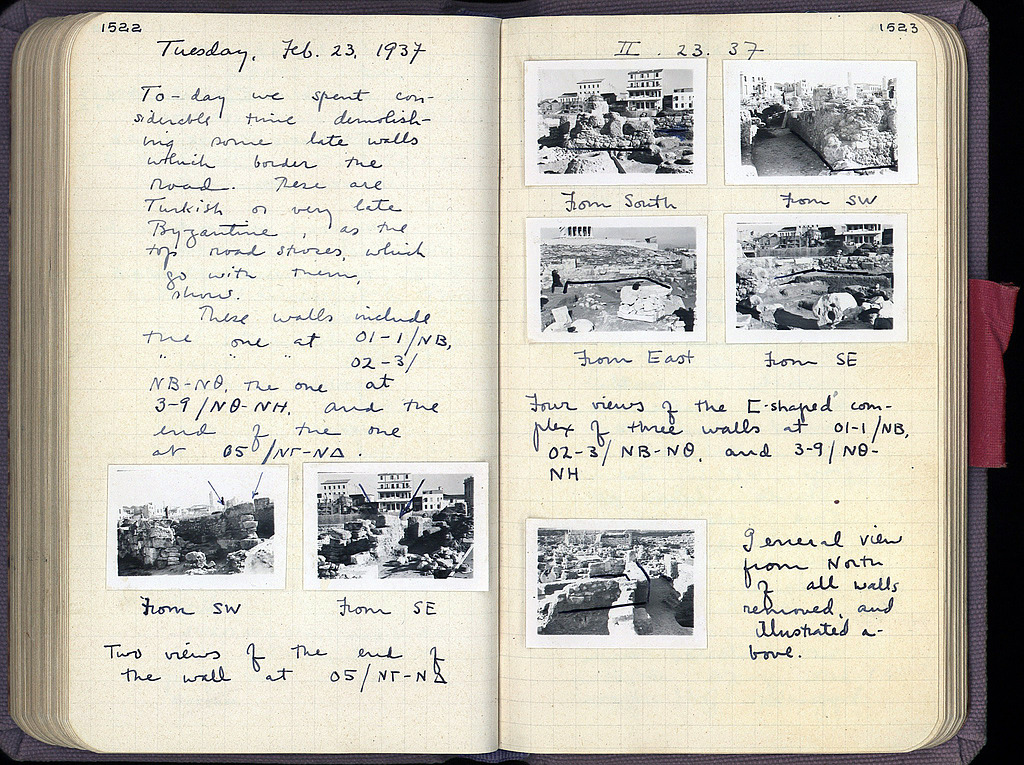 1522
Tuesday, Feb. 23, 1937
To-day we spent con-
siderable time demolish-
ing some late walls
which border the
road. These are
Turkish or very late
Byzantine, as the
top road stroses, which
go with them,
show.
These walls include
the one at 01-1/NB,
" " " 02-3/
NB-NΘ, the one at
3-9/NΘ-NH, and the
end of the one
at 05/NΓ-NΔ.
From SW
From SE
Two views of the end of
the wall at 05/NΓ-NΔ
1523
II. 23. 37
From South
From SW
From East
From SE
Four views of the [-shaped com-
plex of three walls at 01-1/NB,
02-3/NB-NΘ, and 3-9/NΘ-
NH
General view
from North
of all walls
removed, and
illustrated a-
bove.